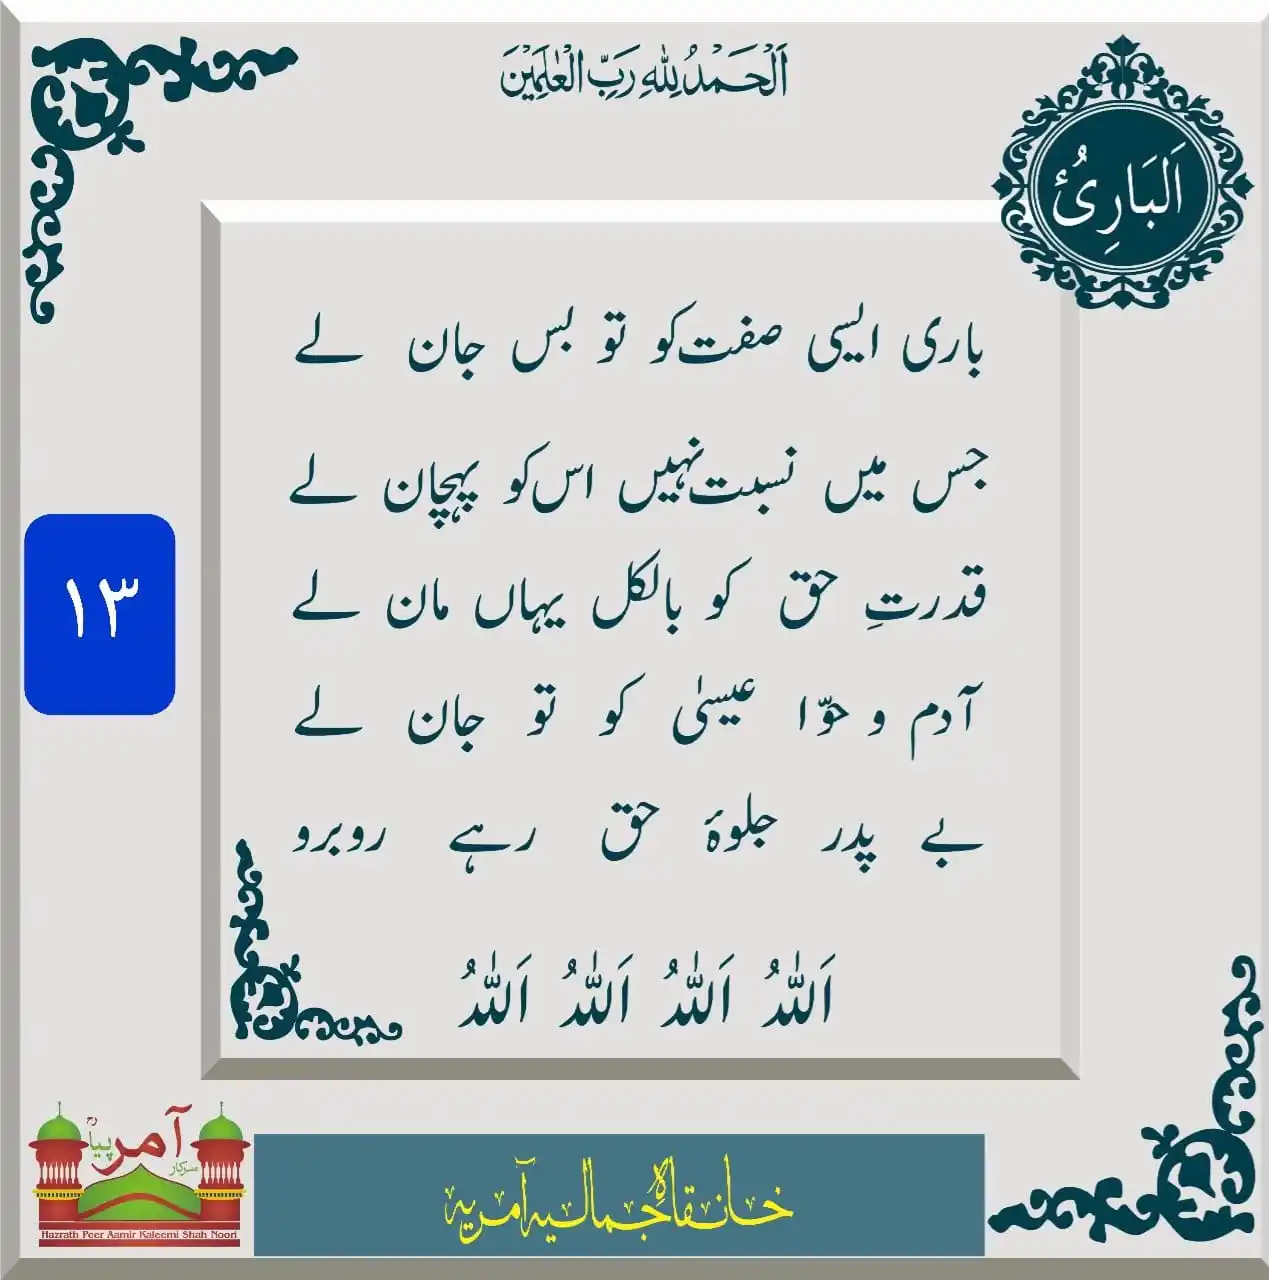 اَلْحَمْدُ لِلّٰهِ رَبِّ الْعٰلَمِيْنَ
اَلبَارِئُ
باری ایسی صفت کو تو بس جان لے
جس میں نسبت نہیں اس کو پہچان لے
قدرتِ حق کو بالکل یہاں مان لے
آدم و حوّا عیسیٰ کو تو جان لے
بے پدر جلوۂ حق رہے روبرو
اَللّٰہُ اَللّٰہُ اَللّٰہُ اَللّٰہُ
۱۳
سرکار آمر پیاؒ
Hazrath Peer Aamir Kaleemi Shah Noori
خانقاہ جمالیہ آمریہ